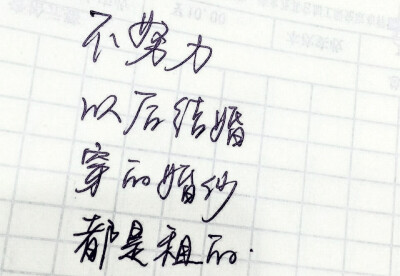 不努力
以后结婚
穿的婚纱
都是租的.